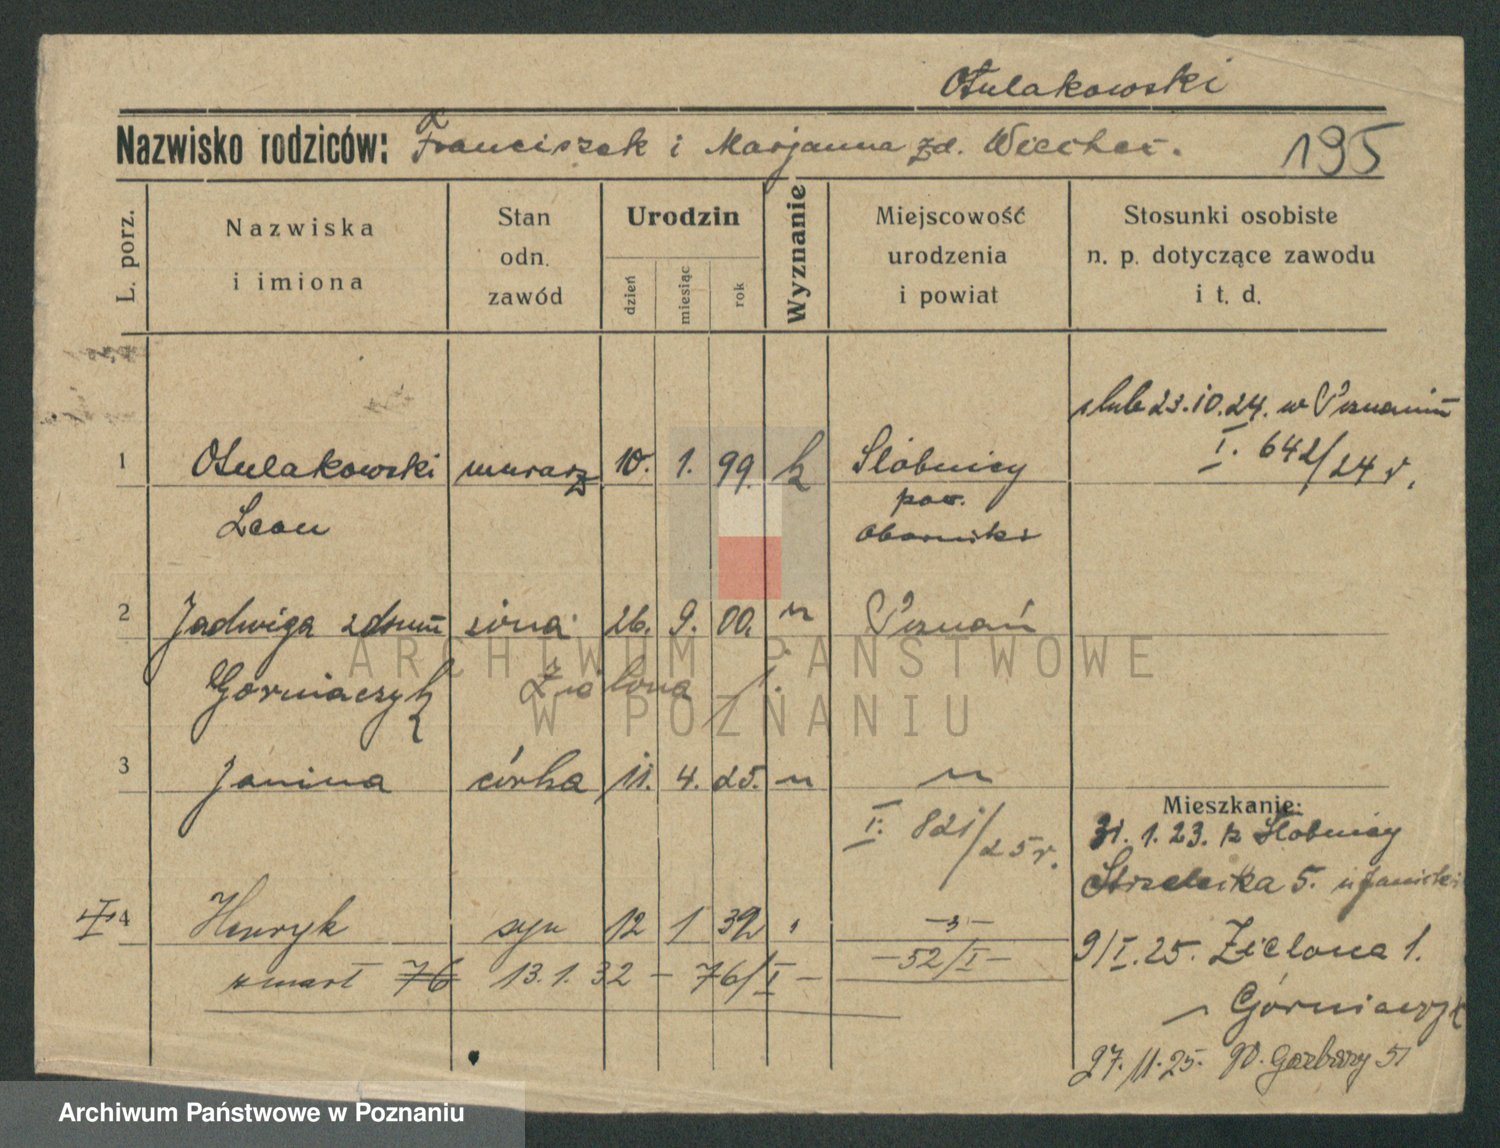 Otulakowski
Nazwisko rodziców: Franciszek i Marjanna zd. Wiecher.
195
L. porz.
Nazwiska
i imiona
Stan
odn.
zawód
Urodzin
dzień
miesiąc
rok
Wyznanie
Miejscowość
urodzenia
i powiat
Stosunki osobiste
n. p. dotyczące zawodu
i t. d.
ślub 23.10.24. w Poznaniu
I. 642/24 r.
1 Otulakowski murarz 10. 1. 99. k Słobnicy
Leon
pow.
Oborniki
2 Jadwiga zdomu żona 26. 9. 00. " Poznań
Górniaczyk Zielona 1.
3 Janina córka 11. 4. 25. " "
I. 821/25 r.
Mieszkanie:
31. 1. 23. z Słobnicy
Strzelecka 5.
I 4 Henryk syn 12 1 32 "
zmarł 76 13.1.32 - 76/I -
- 52/I -
9/I.25. Zielona 1.
Górniaczyk
27.11.25. Garbary 51
ARCHIWUM PAŃSTWOWE
W POZNANIU
Archiwum Państwowe w Poznaniu